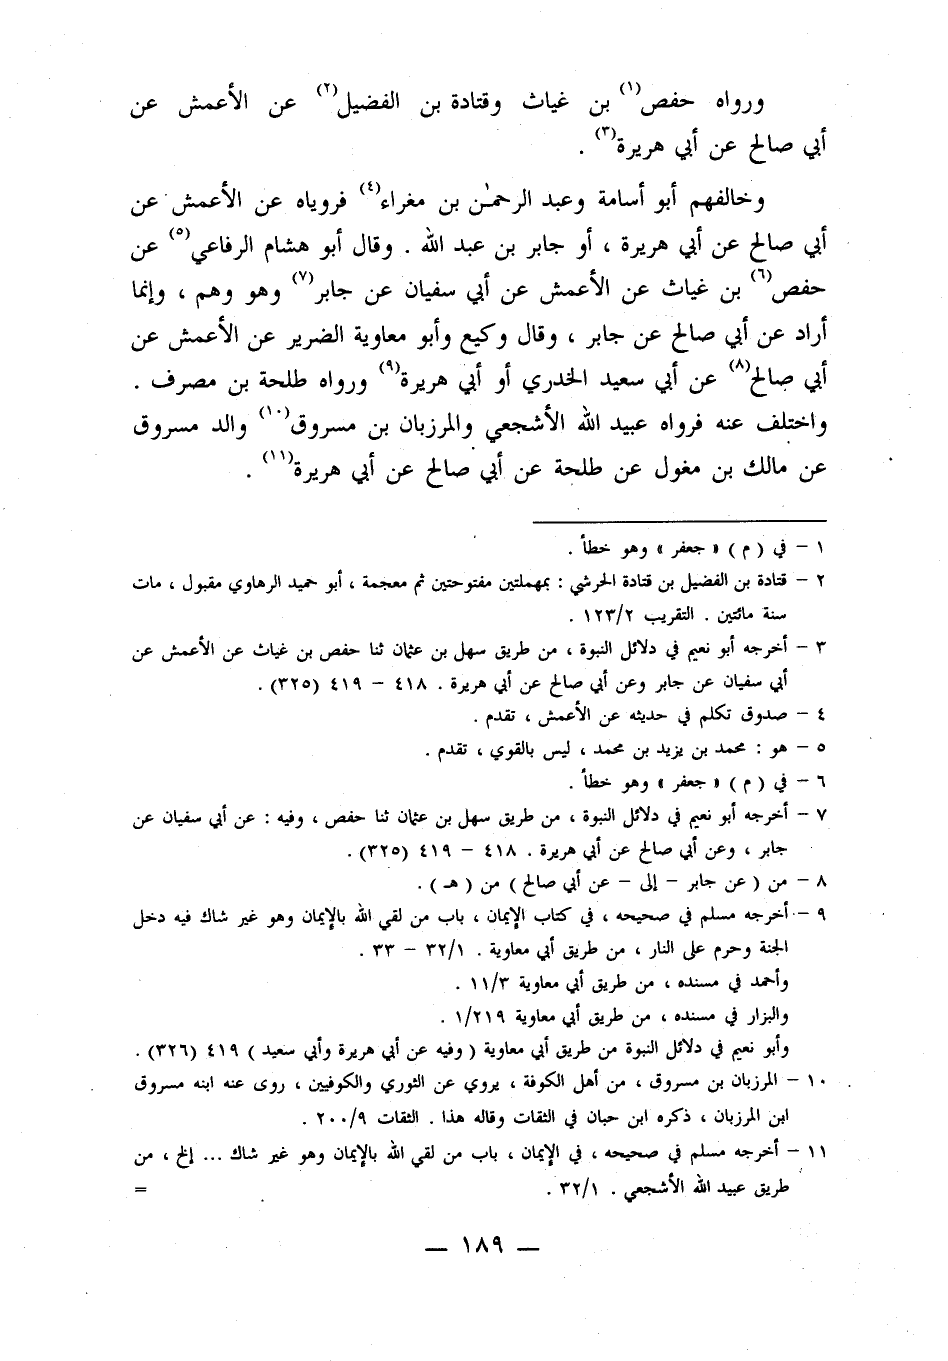 ورواه حفص(١) بن غياث وقتادة بن الفضيل(٢) عن الأعمش عن
أبي صالح عن أبي هريرة(٣) .
وخالفهم أبو أسامة وعبد الرحمٰن بن مغراء(٤) فروياه عن الأعمش عن
أبي صالح عن أبي هريرة ، أو جابر بن عبد الله . وقال أبو هشام الرفاعي(٥) عن
حفص(٦) بن غياث عن الأعمش عن أبي سفيان عن جابر(٧) وهو وهم ، وإنما
أراد عن أبي صالح عن جابر ، وقال وكيع وأبو معاوية الضرير عن الأعمش عن
أبي صالح(٨) عن أبي سعيد الخدري أو أبي هريرة(٩) ورواه طلحة بن مصرف .
واختلف عنه فرواه عبيد الله الأشجعي والمرزبان بن مسروق(١٠) والد مسروق
عن مالك بن مغول عن طلحة عن أبي صالح عن أبي هريرة(١١) .
١ – في ( م ) « جعفر » وهو خطأ .
٢ – قتادة بن الفضيل بن قتادة الحرشي : بمهملتين مفتوحتين ثم معجمة ، أبو حميد الرهاوي مقبول ، مات
سنة مائتين . التقريب ١٢٣/٢ .
٣ – أخرجه أبو نعيم في دلائل النبوة ، من طريق سهل بن عثمان ثنا حفص بن غياث عن الأعمش عن
أبي سفيان عن جابر وعن أبي صالح عن أبي هريرة . ٤١٨ – ٤١٩ (٣٢٥) .
٤ – صدوق تكلم في حديثه عن الأعمش ، تقدم .
٥ – هو : محمد بن يزيد بن محمد ، ليس بالقوي ، تقدم .
٦ – في ( م ) « جعفر » وهو خطأ .
٧ – أخرجه أبو نعيم في دلائل النبوة ، من طريق سهل بن عثمان ثنا حفص ، وفيه : عن أبي سفيان عن
جابر ، وعن أبي صالح عن أبي هريرة . ٤١٨ – ٤١٩ (٣٢٥) .
٨ – من ( عن جابر – إلى – عن أبي صالح ) من ( هـ ) .
٩ – أخرجه مسلم في صحيحه ، في كتاب الإيمان ، باب من لقي الله بالإيمان وهو غير شاك فيه دخل
الجنة وحرم على النار ، من طريق أبي معاوية . ٣٢/١ – ٣٣ .
وأحمد في مسنده ، من طريق أبي معاوية ١١/٣ .
والبزار في مسنده ، من طريق أبي معاوية ١/٢١٩ .
وأبو نعيم في دلائل النبوة من طريق أبي معاوية ( وفيه عن أبي هريرة وأبي سعيد ) ٤١٩ (٣٢٦) .
١٠ – المرزبان بن مسروق ، من أهل الكوفة ، يروي عن الثوري والكوفيين ، روى عنه ابنه مسروق
ابن المرزبان ، ذكره ابن حبان في الثقات وقاله هذا . الثقات ٢٠٠/٩ .
١١ – أخرجه مسلم في صحيحه ، في الإيمان ، باب من لقي الله بالإيمان وهو غير شاك ... إلخ ، من
طريق عبيد الله الأشجعي . ٣٢/١ . =
— ١٨٩ —